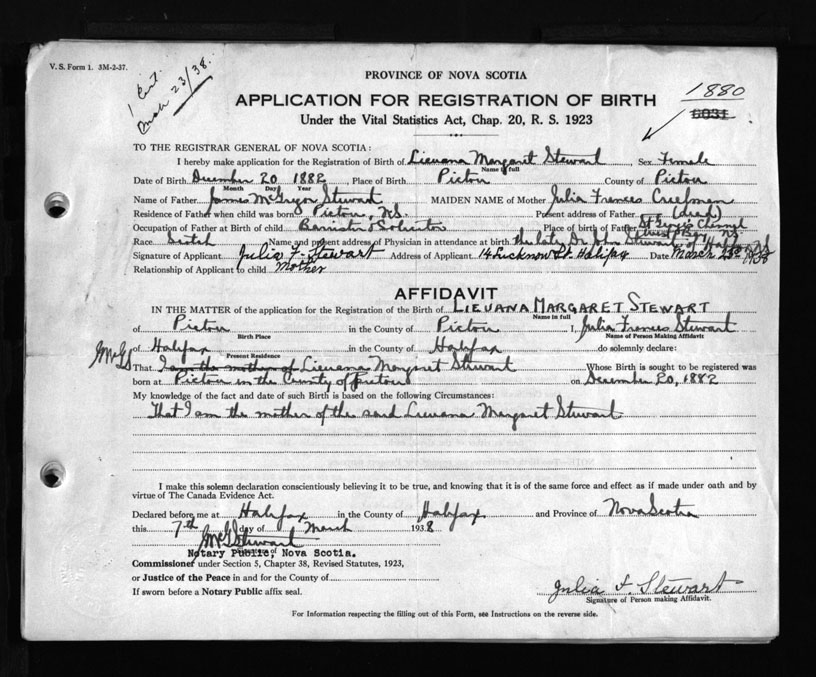 V. S. Form 1. 3M-2-37.
1 Cert.
March 23/38.
PROVINCE OF NOVA SCOTIA
APPLICATION FOR REGISTRATION OF BIRTH
1880
6031
Under the Vital Statistics Act, Chap. 20, R. S. 1923
TO THE REGISTRAR GENERAL OF NOVA SCOTIA:
I hereby make application for the Registration of Birth of Lieuana Margaret Stewart, Sex Female
Name in full
Date of Birth December 20 1882 Place of Birth Pictou County of Pictou
Month Day Year
Name of Father James McGregor Stewart MAIDEN NAME of Mother Julia Frances Creelman
Residence of Father when child was born Pictou, N.S. Present address of Father (dead)
Occupation of Father at Birth of child Barrister & Solicitor Place of birth of Father
Race Scotch Name and present address of Physician in attendance at birth the late Dr John Stewart of Halifax NS
Signature of Applicant Julia F. Stewart Address of Applicant 14 Lucknow St. Halifax Date March 23rd 1938
Relationship of Applicant to child Mother
AFFIDAVIT
IN THE MATTER of the application for the Registration of the Birth of LIEUANA MARGARET STEWART
Name in full
of Pictou in the County of Pictou I, Julia Frances Stewart
Birth Place Name of Person Making Affidavit
of Halifax in the County of Halifax do solemnly declare:
Present Residence
JMcGS That I am the mother of Lieuana Margaret Stewart Whose Birth is sought to be registered was
born at Pictou in the County of Pictou on December 20, 1882
My knowledge of the fact and date of such Birth is based on the following Circumstances:
That I am the mother of the said Lieuana Margaret Stewart
I make this solemn declaration conscientiously believing it to be true, and knowing that it is of the same force and effect as if made under oath and by
virtue of The Canada Evidence Act.
Declared before me at Halifax in the County of Halifax and Province of Nova Scotia
this 7th day of March 1938
JMcGStewart
Notary Public, Nova Scotia.
Commissioner under Section 5, Chapter 38, Revised Statutes, 1923,
or Justice of the Peace in and for the County of
If sworn before a Notary Public affix seal.
Julia F. Stewart
Signature of Person making Affidavit.
For Information respecting the filling out of this Form, see Instructions on the reverse side.